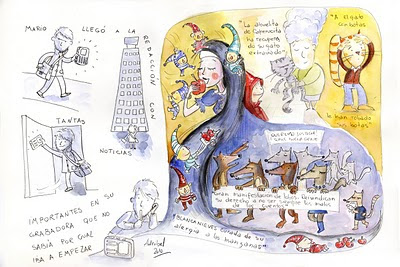 MARIO LLEGÓ A LA
REDACCIÓN CON
TANTAS
NOTICIAS
IMPORTANTES EN SU
GRABADORA QUE NO
SABÍA POR CUAL
IBA A EMPEZAR
"La abuelita
de Caperucita
ha recuperado
su gato
extraviado"
"A El gato
con botas
le han robado
sus botas"
QUEREMOS DISEÑAR
"Gran manifestación de lobos. Reivindican
su derecho a no ser siempre los malos
de los cuentos"
"BLANCANIEVES curada de su
alergia a las manzanas"